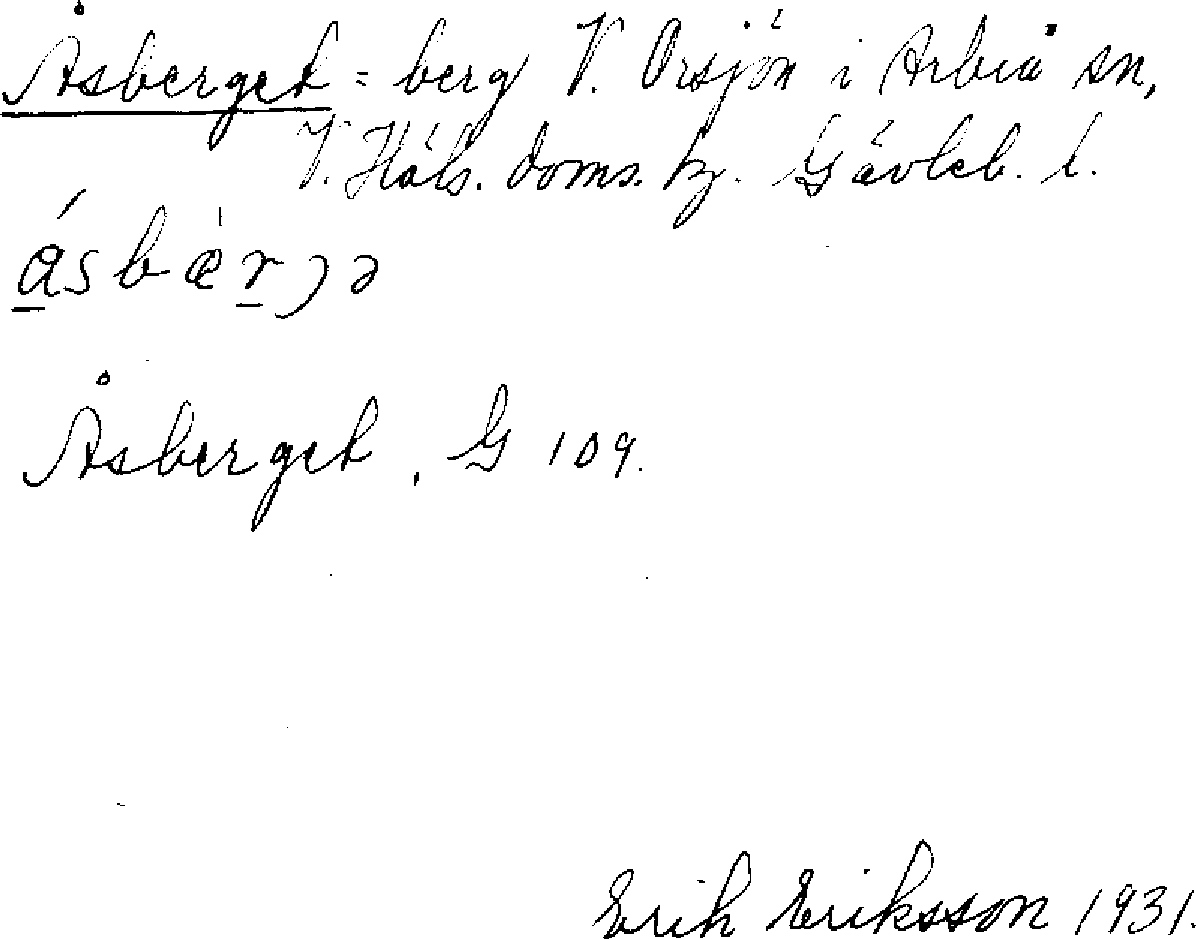 Åsberget = berg V. Orsjön i Arbrå sn,
V. Häls. doms. hg. Gävleb. l.
Åsberget, G 109.
Erik Eriksson 1931.